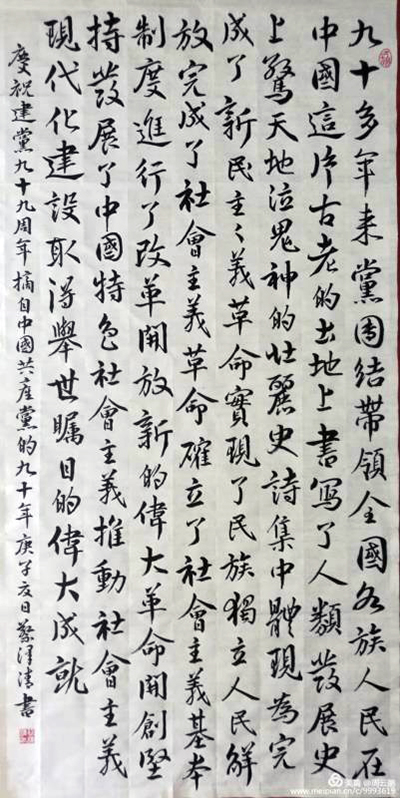 九十多年来黨團结帶領全國各族人民在
中國這片古老的土地上書寫了人類發展史
上驚天地泣鬼神的壯麗史詩集中體現為完
成了新民主々義革命實現了民族獨立人民解
放完成了社會主義革命確立了社會主義基本
制度進行了改革開放新的偉大革命開創堅
持發展了中國特色社會主義推動社會主義
現代化建設取得舉世矚目的偉大成就
慶祝建黨九十九周年摘自中國共產黨的九十年庚子夏日蔡澤清書
美篇
www.meipian.cn/c/9993619